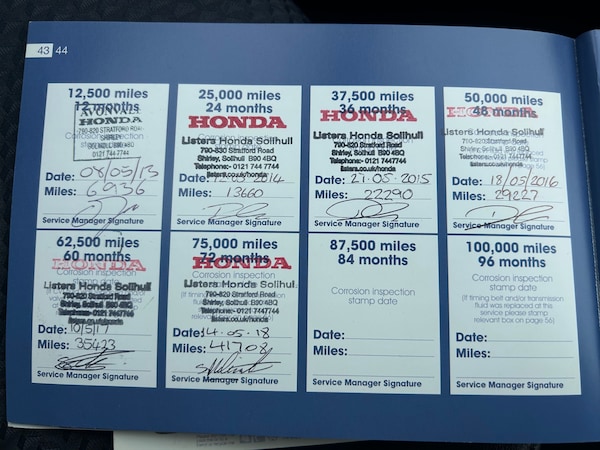 43 44
12,500 miles
12 months
AVONVALE
HONDA
790-820 STRATFORD ROAD
SHIRLEY
0121 744 7744
Date: 08/05/13
Miles: 6936
Service Manager Signature
25,000 miles
24 months
HONDA
Listers Honda Solihull
790-830 Stratford Road
Shirley, Solihull B90 4BQ
Telephone:- 0121 744 7744
listers.co.uk/honda
Date: 2014
Miles: 13660
Service Manager Signature
37,500 miles
36 months
HONDA
Listers Honda Solihull
790-820 Stratford Road
Shirley, Solihull B90 4BQ
Telephone:- 0121 744 7744
listers.co.uk/honda
Date: 21.05.2015
Miles: 22290
Service Manager Signature
50,000 miles
48 months
HONDA
Listers Honda Solihull
Stratford Road
Shirley, Solihull B90 4BQ
Telephone:- 0121 7447744
listers.co.uk/honda
Date: 18/05/2016
Miles: 29227
Service Manager Signature
62,500 miles
60 months
HONDA
Corrosion inspection
Listers Honda Solihull
790-820 Stratford Road
Shirley, Solihull B90 4BQ
Telephone:- 0121 7447744
listers.co.uk/honda
Date: 10/5/17
Miles: 35423
Service Manager Signature
75,000 miles
72 months
HONDA
Corrosion inspection
Listers Honda Solihull
790-820 Stratford Road
Shirley, Solihull B90 4BQ
Telephone:- 0121 744 7744
listers.co.uk/honda
Date: 14.05.18
Miles: 41708
Service Manager Signature
87,500 miles
84 months
Corrosion inspection
stamp date
Date:
Miles:
Service Manager Signature
100,000 miles
96 months
Corrosion inspection
stamp date
(If timing belt and/or transmission
fluid was replaced at this
service please stamp
relevant box on page 56)
Date:
Miles:
Service Manager Signature